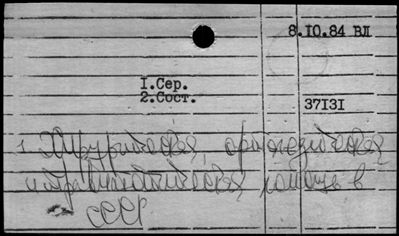 8.10.84 ВЛ
1.Сер.
2.Сост.
37131
1 Хирургическая, ортопедическая
и травматологическая помощь в
СССР